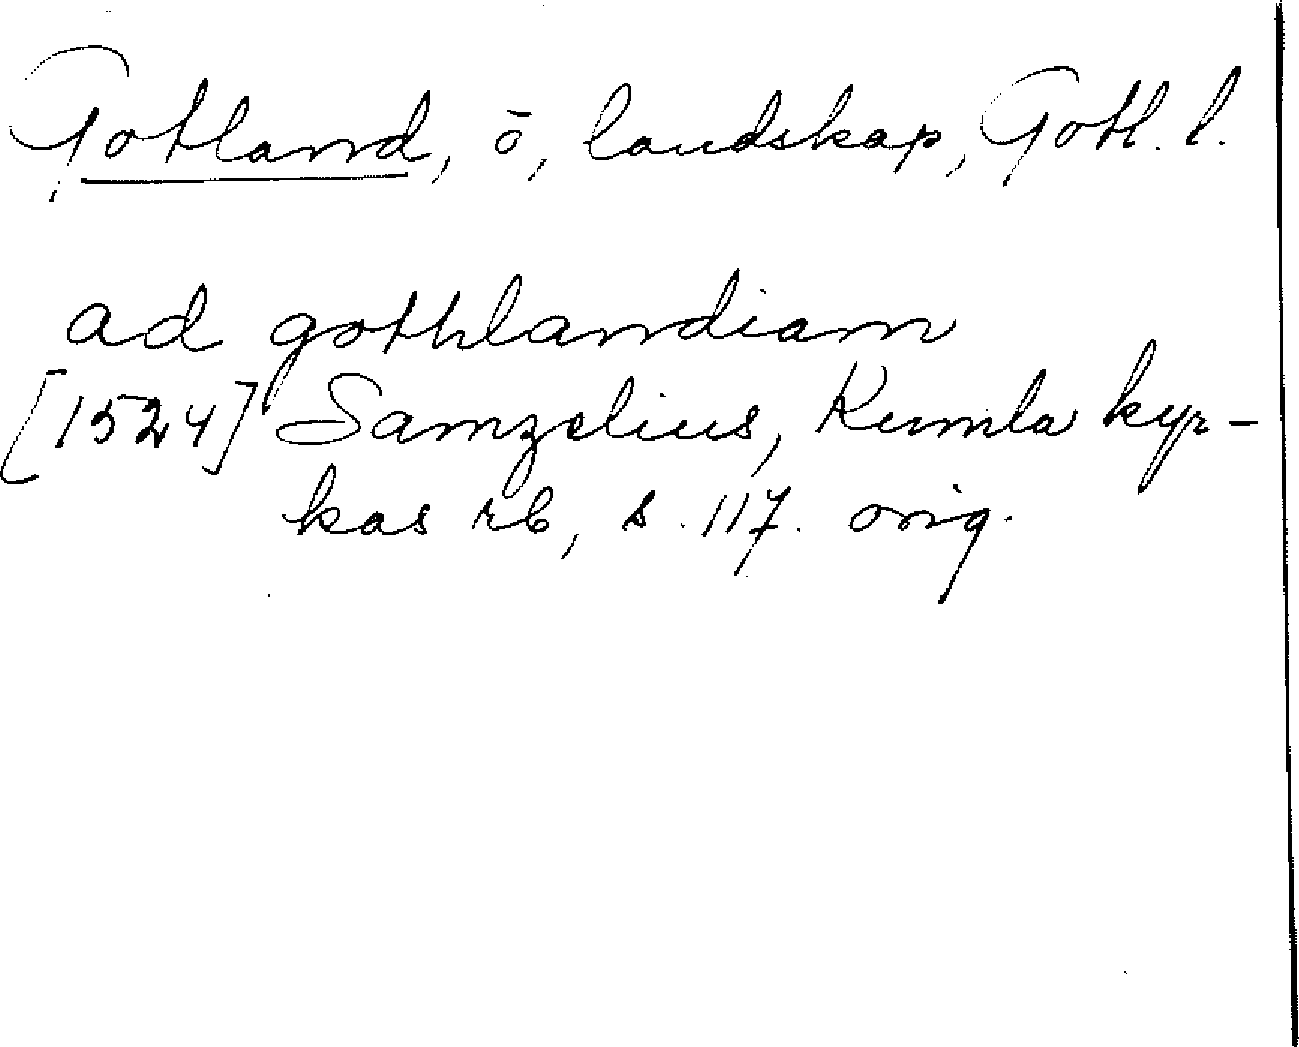 Gotland, ö, landskap, Gotl. l.
ad gothlandiam
[1524] Samzelius, Kumla kyr-
kas rb, s. 117. orig.